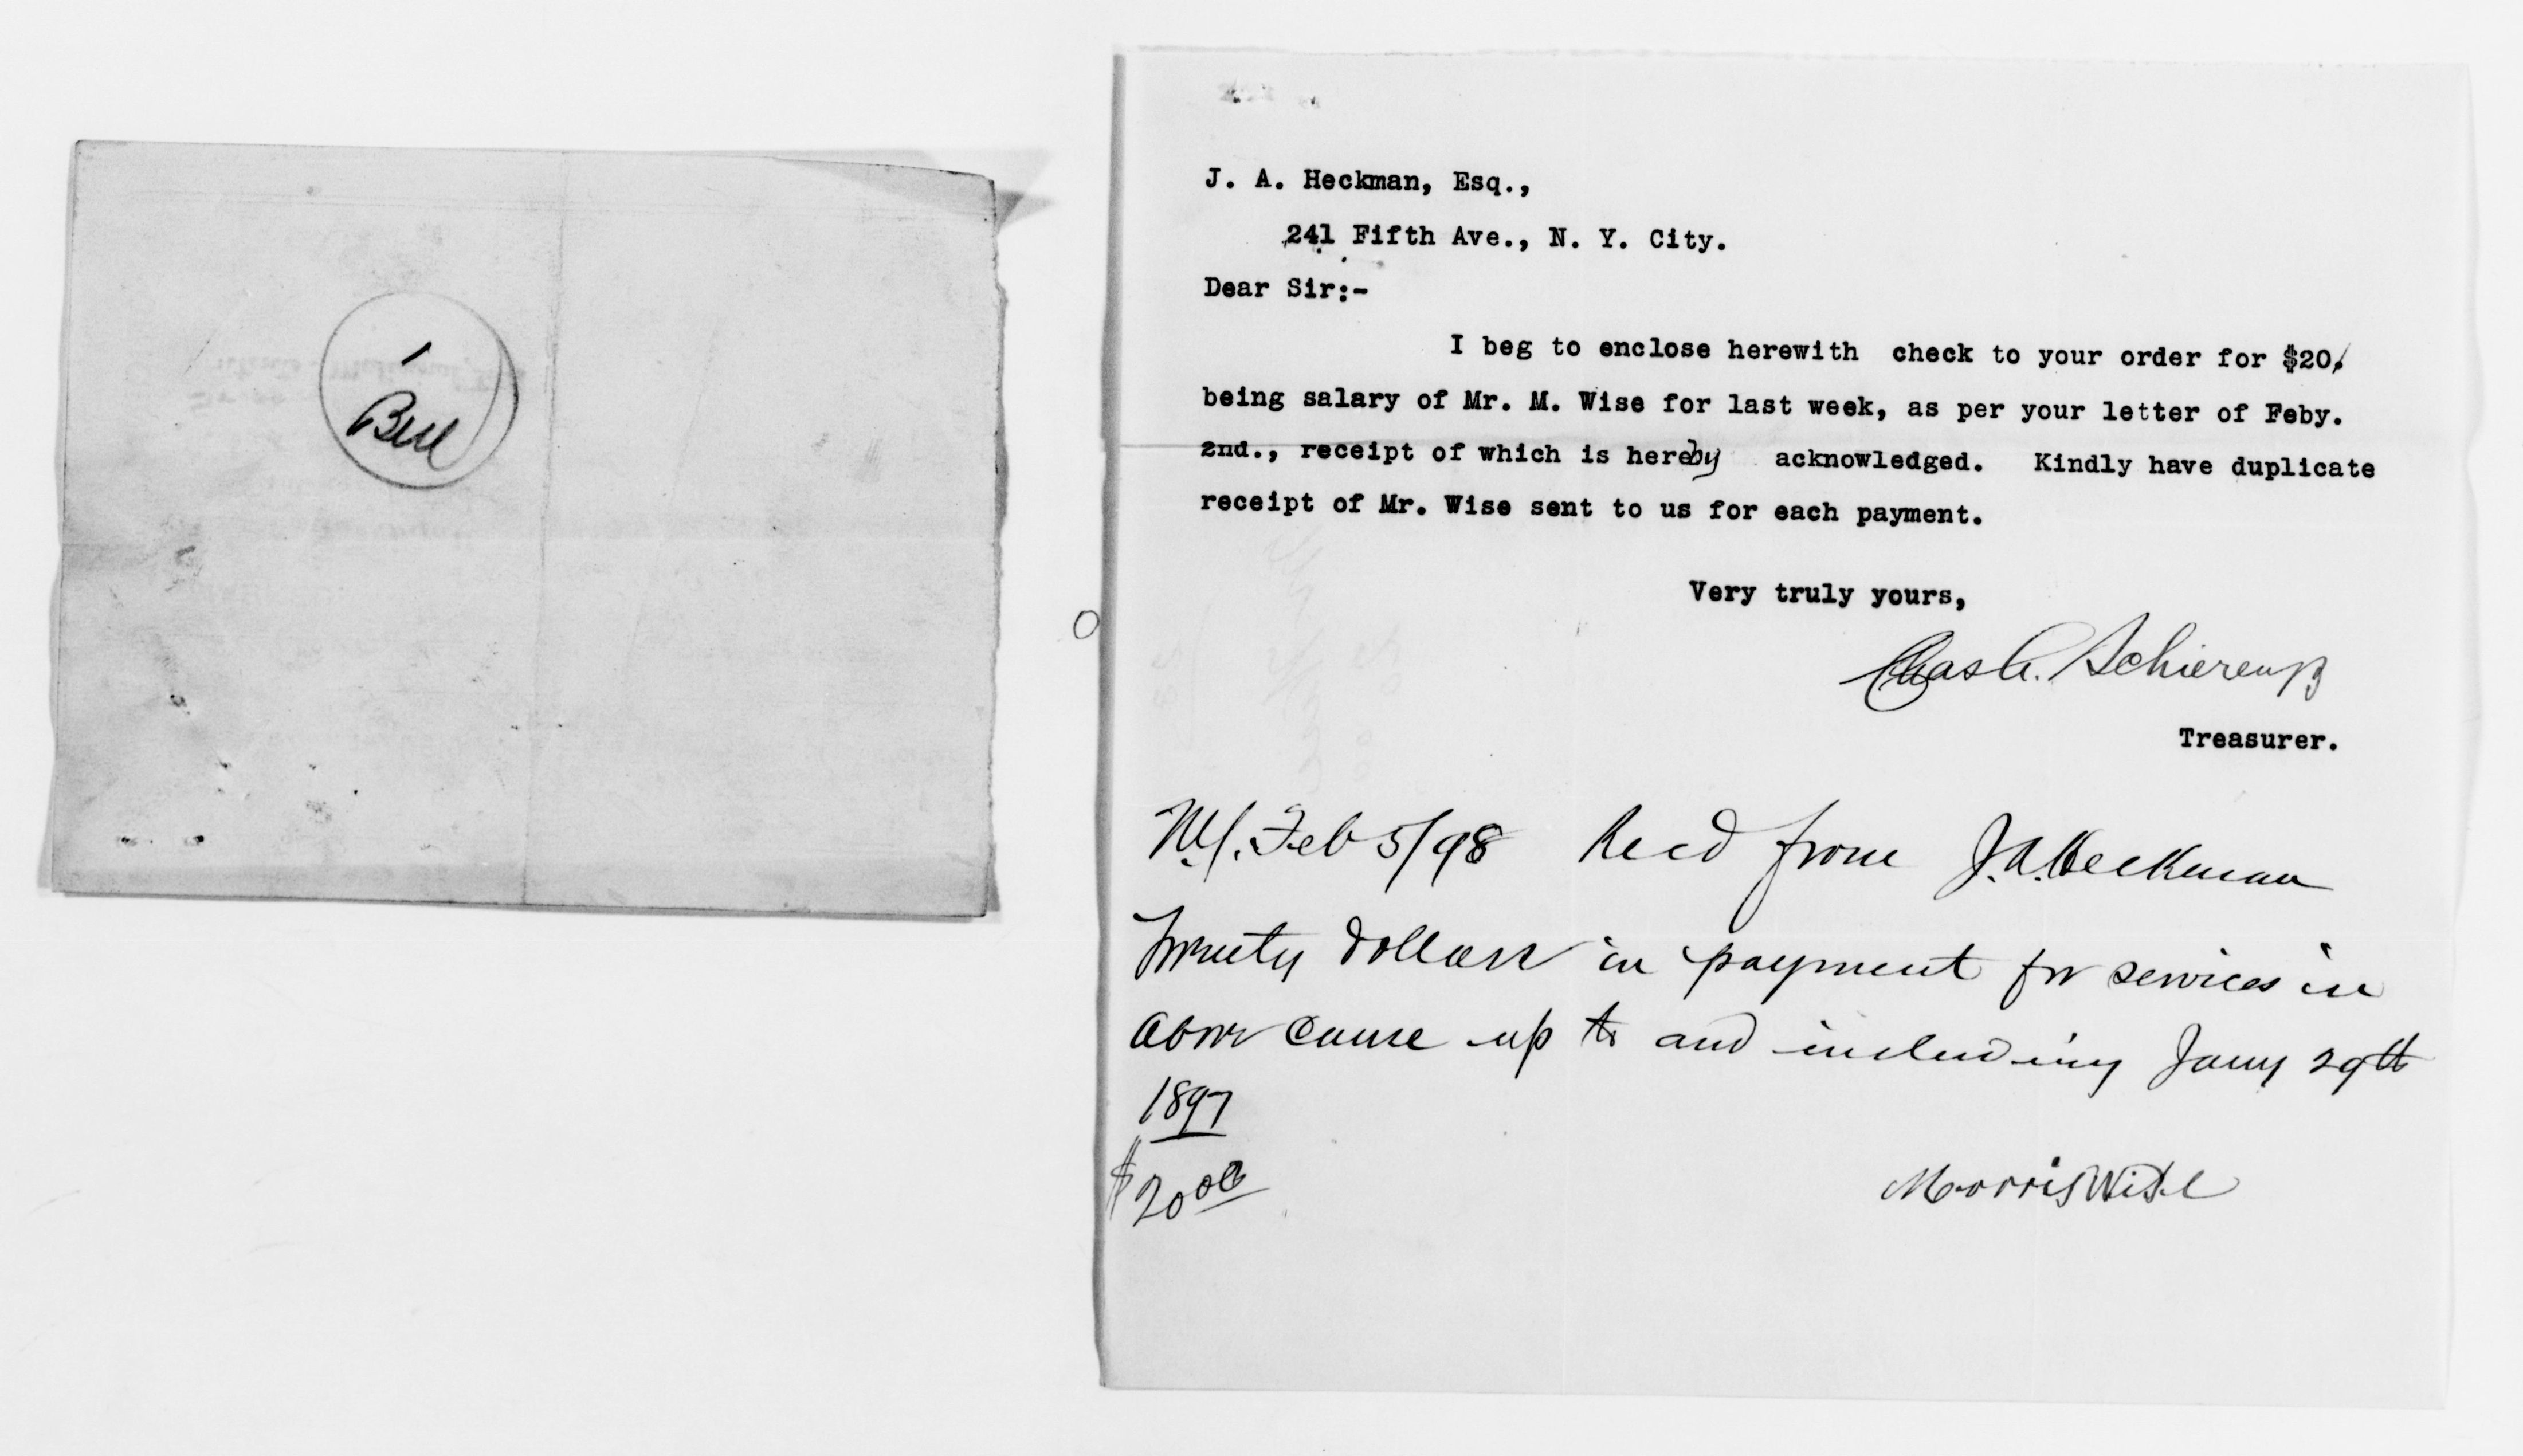 1
Bill
J. A. Heckman, Esq.,
241 Fifth Ave., N. Y. City.
Dear Sir:-
I beg to enclose herewith check to your order for $20.
being salary of Mr. M. Wise for last week, as per your letter of Feby.
2nd., receipt of which is hereby acknowledged. Kindly have duplicate
receipt of Mr. Wise sent to us for each payment.
Very truly yours,
Chas A.
Treasurer.
N.Y. Feb 5/98 Recd from J. A. Heckman
Twenty Dollars in payment for services in
above cause up to and including Jany 29th
1897
$20 00
Morris Wise